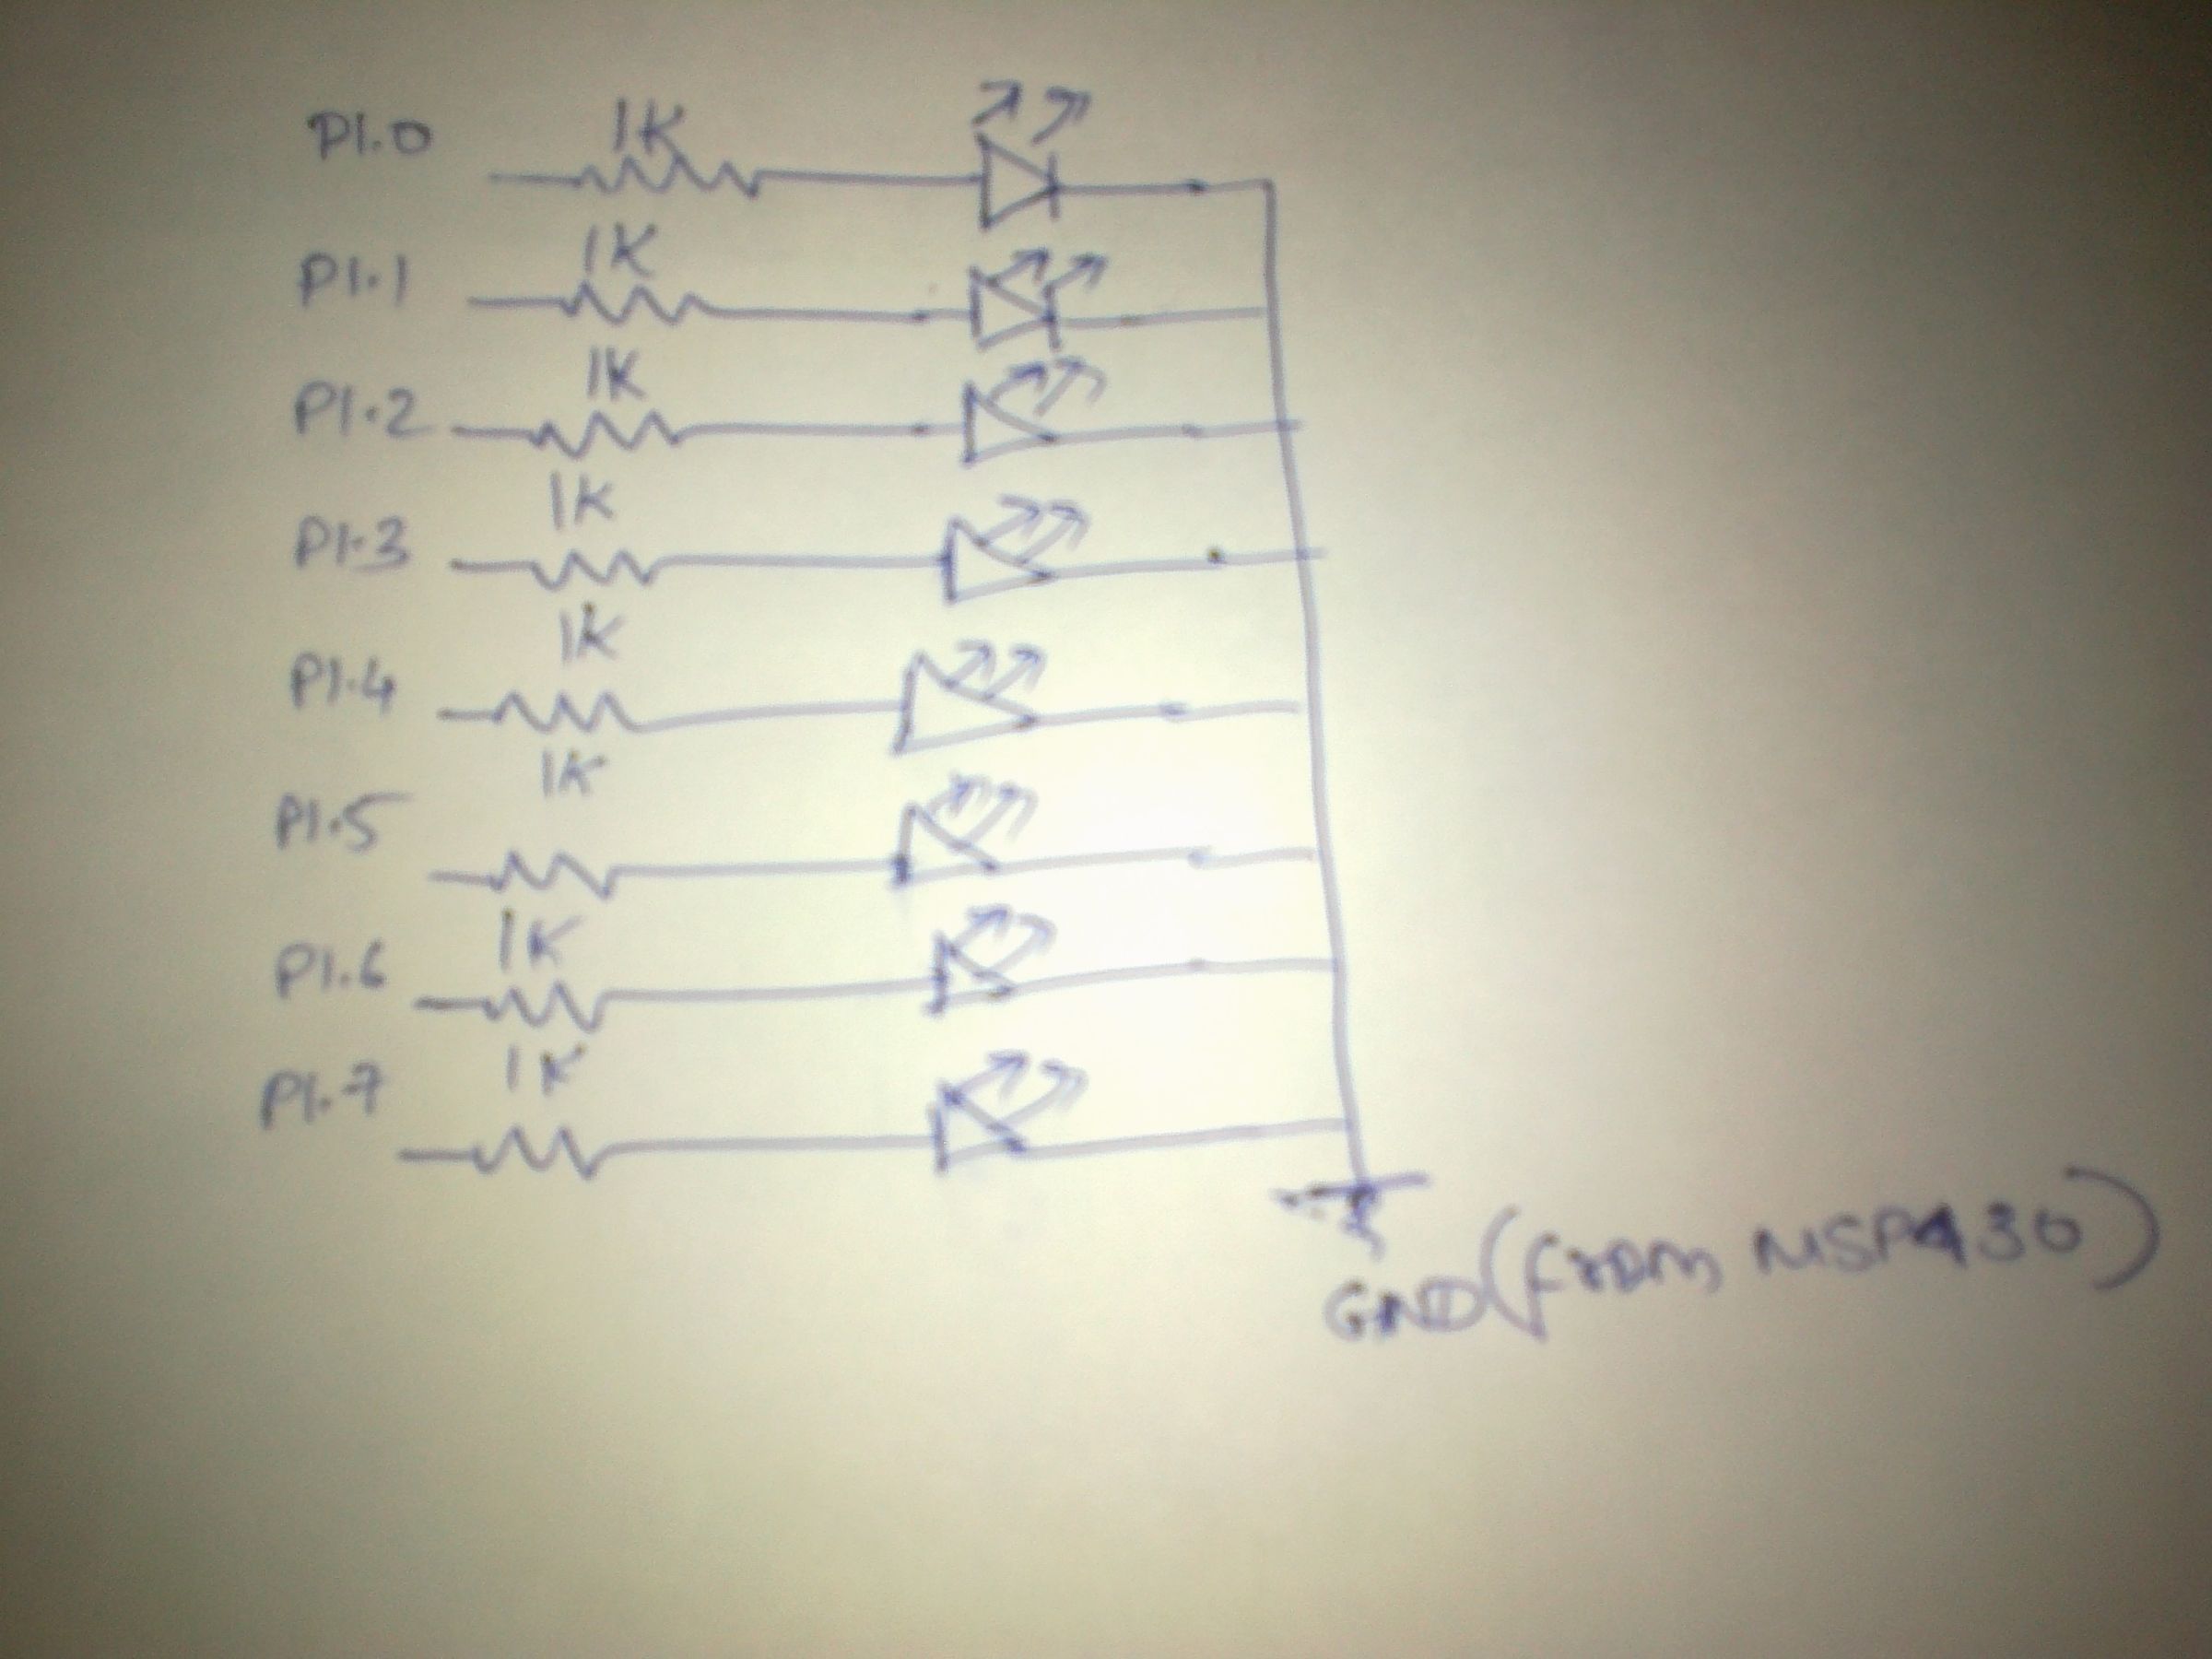 P1.0 1K
P1.1 1K
P1.2 1K
P1.3 1K
P1.4 1K
P1.5 1K
P1.6 1K
P1.7 1K
GND (from MSP430)